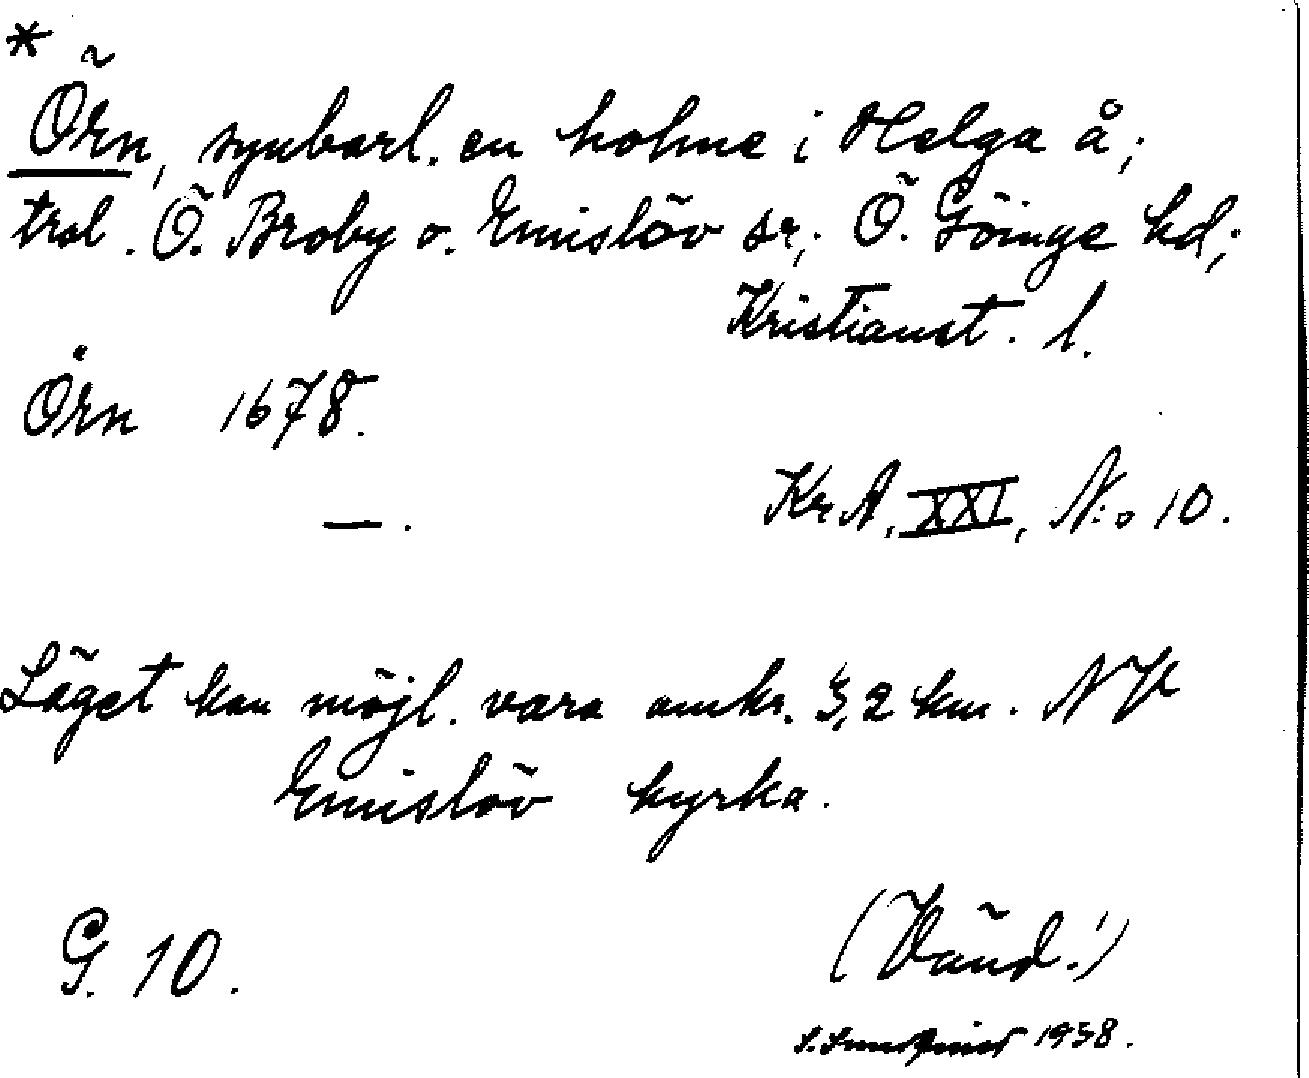 *
Örn, synbarl. en holme i Helga å;
trol. Ö. Broby o. Emislöv sr; Ö. Göinge hd;
Kristianst. l.
Örn 1678.
— . Kr A, XXI, N:o 10.
Läget kan möjl. vara omkr. 3,2 km. NV
Emislöv kyrka.
G. 10. (Vänd!)
1938.